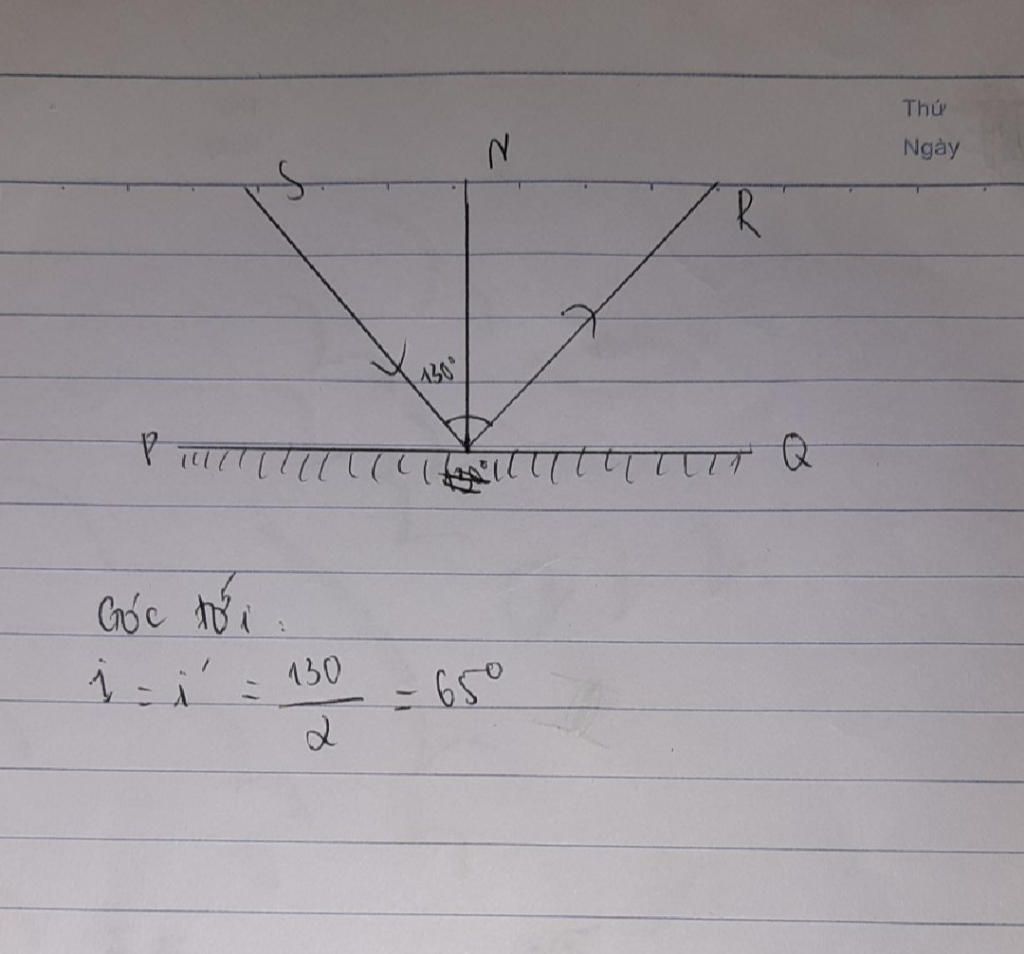 Thứ
Ngày
S N R
130°
P Q
Góc tới:
i = i' = 130/2 = 65°